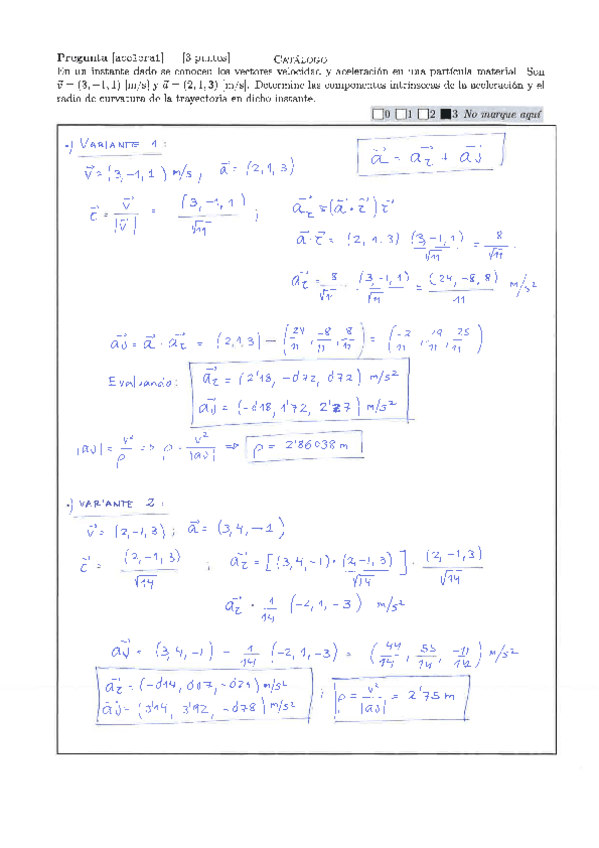 Pregunta [acelera1] [3 puntos] CATÁLOGO
En un instante dado se conocen los vectores velocidad y aceleración en una partícula material. Son
v⃗ = (3, −1, 1) [m/s] y a⃗ = (2, 1, 3) [m/s]. Determine las componentes intrínsecas de la aceleración y el
radio de curvatura de la trayectoria en dicho instante.
□0 □1 □2 ■3 No marque aquí
·) VARIANTE 1:
v⃗ = (3, -1, 1) m/s, a⃗ = (2, 1, 3)
a⃗ = a⃗τ + a⃗ν
τ⃗ = v⃗/|v⃗| = (3, -1, 1)/√11 ; a⃗τ = (a⃗ · τ⃗) τ⃗
a⃗ · τ⃗ = (2, 1, 3) (3, -1, 1)/√11 = 8/√11
a⃗τ = 8/√11 · (3, -1, 1)/√11 = (24, -8, 8)/11 m/s²
a⃗ν = a⃗ - a⃗τ = (2,1,3) - (24/11, -8/11, 8/11) = (-2/11, 19/11, 25/11)
Evaluando: a⃗τ = (2'18, -0'72, 0'72) m/s²
a⃗ν = (-0'18, 1'72, 2'27) m/s²
|aν| = v²/ρ => ρ = v²/|aν| => ρ = 2'86038 m
·) VARIANTE 2:
v⃗ = (2, -1, 3) ; a⃗ = (3, 4, -1)
τ⃗ = (2, -1, 3)/√14 ; a⃗τ = [(3, 4, -1) · (2, -1, 3)/√14] · (2, -1, 3)/√14
a⃗τ = 1/14 (-2, 1, -3) m/s²
a⃗ν = (3, 4, -1) - 1/14 (-2, 1, -3) = (44/14, 55/14, -11/14) m/s²
a⃗τ = (-0'14, 0'07, -0'21) m/s²
a⃗ν = (3'14, 3'92, -0'78) m/s² ; ρ = v²/|aν| = 2'75 m